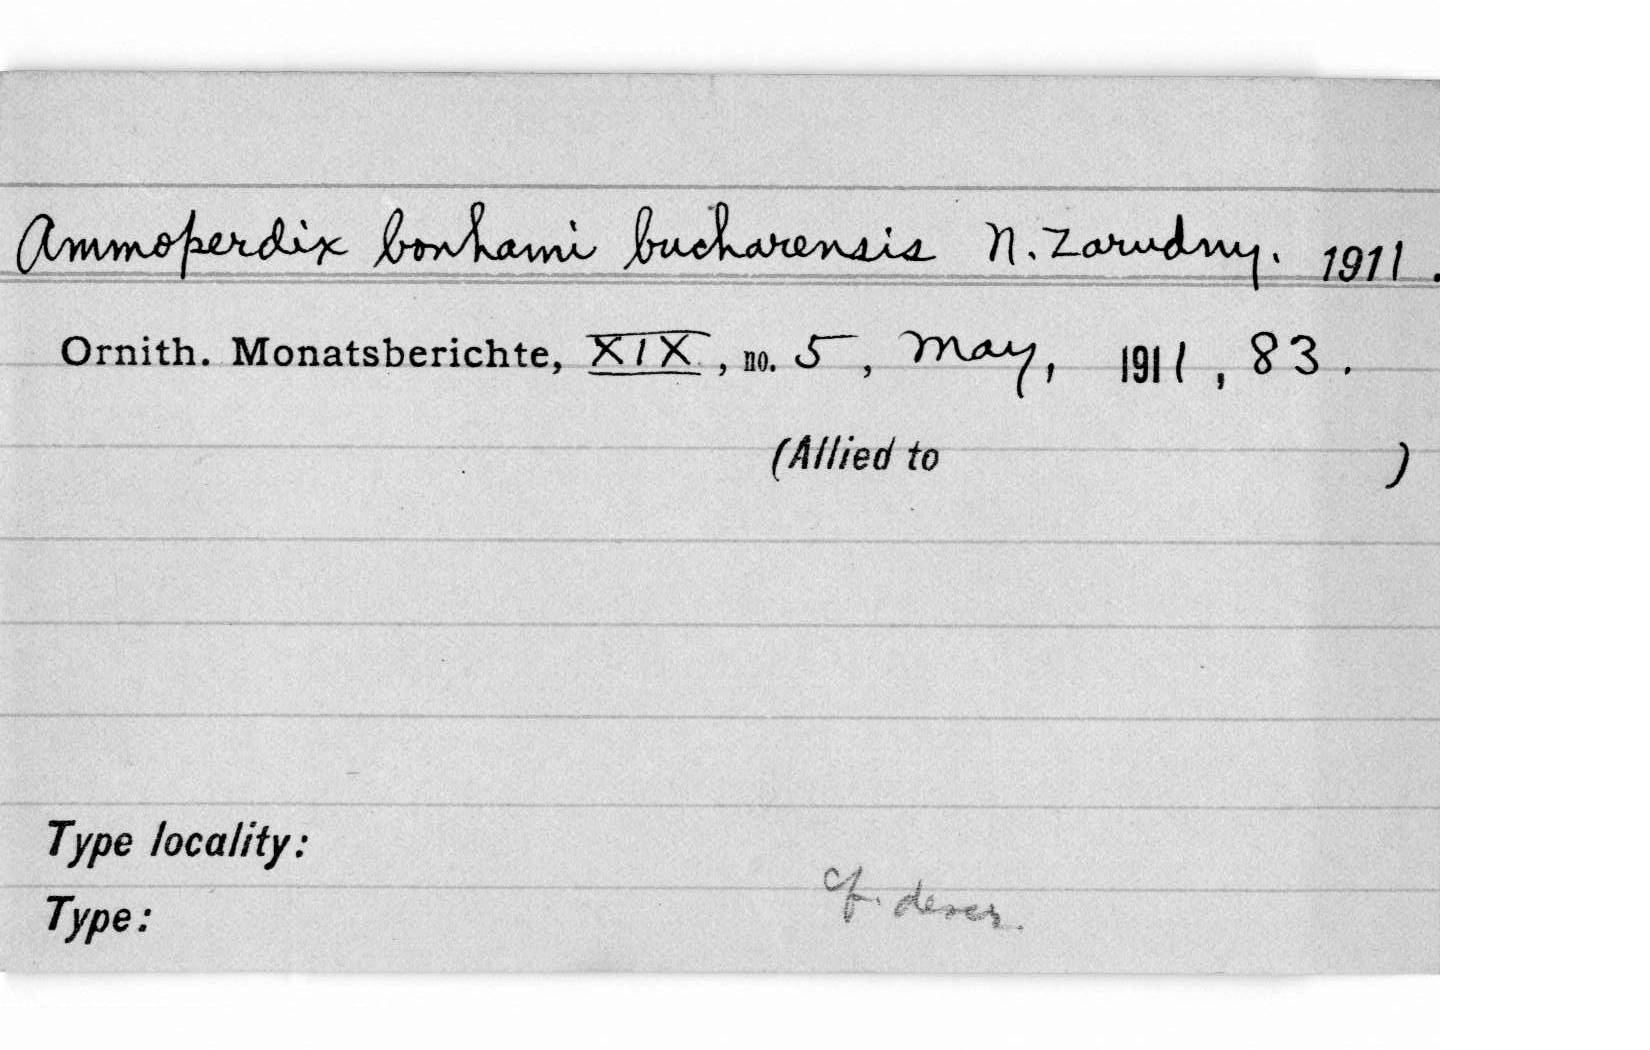 Ammoperdix bonhami bucharensis N. Zarudny. 1911.
Ornith. Monatsberichte, XIX, no. 5, May, 1911, 83.
(Allied to )
Type locality:
cf. descr.
Type: